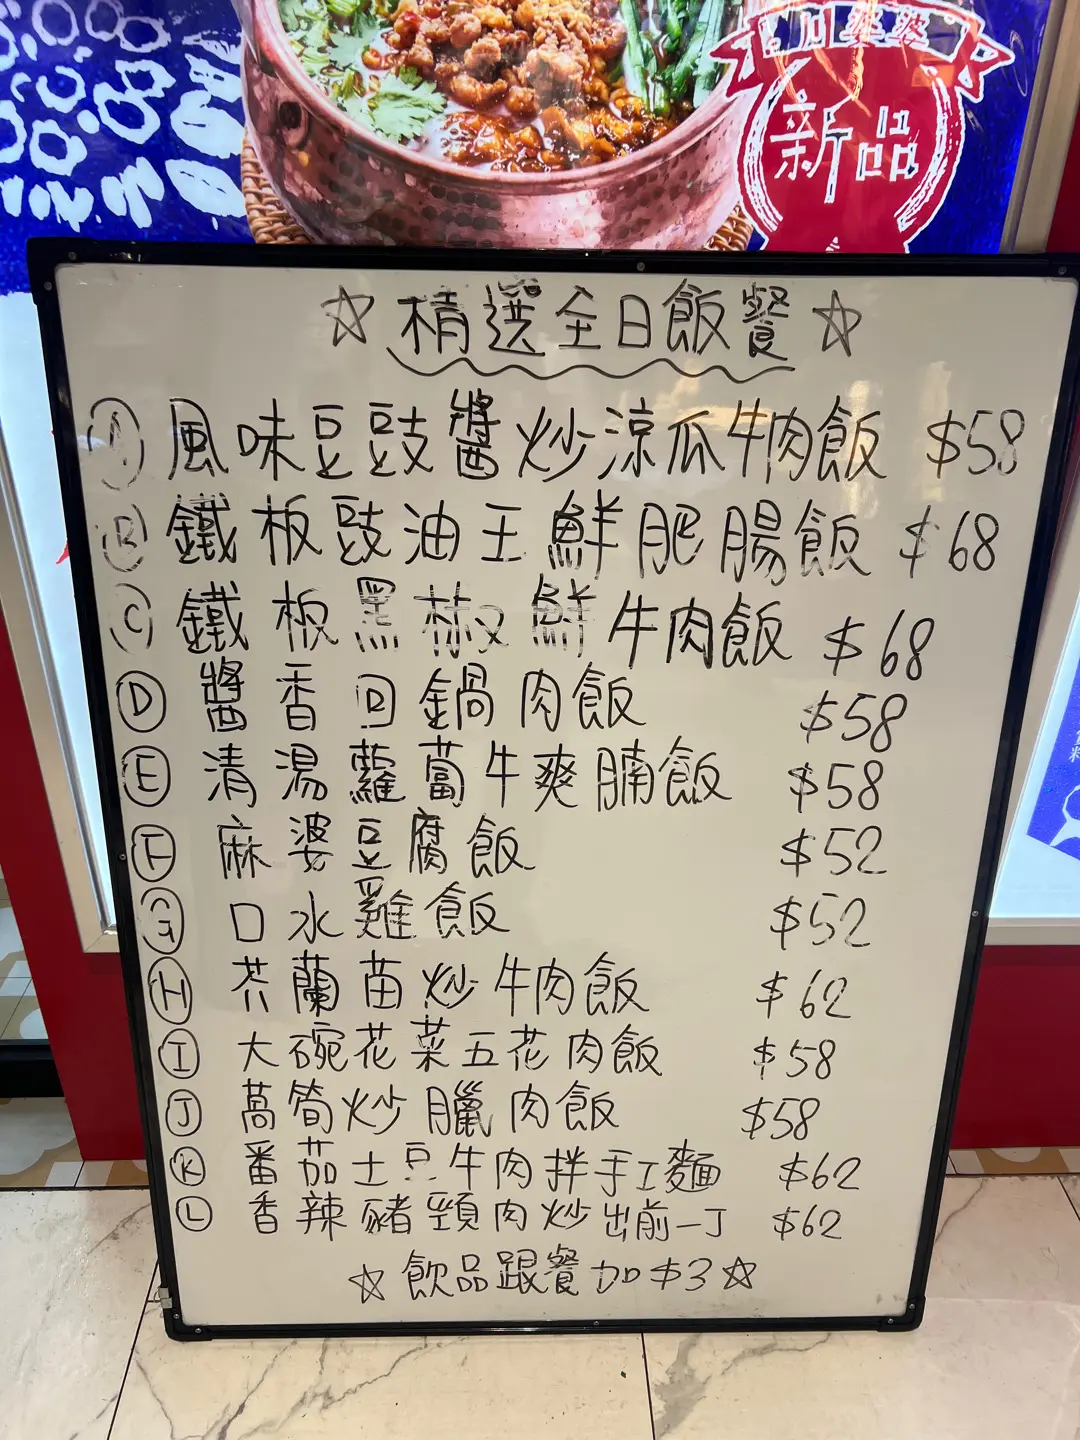 川婆婆
新品
☆精選全日飯餐☆
Ⓐ風味豆豉醬炒涼瓜牛肉飯 $58
Ⓑ鐵板豉油王鮮肥腸飯 $68
Ⓒ鐵板黑椒鮮牛肉飯 $68
Ⓓ醬香回鍋肉飯 $58
Ⓔ清湯蘿蔔牛爽腩飯 $58
Ⓕ麻婆豆腐飯 $52
Ⓖ口水雞飯 $52
Ⓗ芥蘭苗炒牛肉飯 $62
Ⓘ大碗花菜五花肉飯 $58
Ⓙ萵筍炒臘肉飯 $58
Ⓚ番茄土豆牛肉拌手工麵 $62
Ⓛ香辣豬頸肉炒出前一丁 $62
☆飲品跟餐加$3☆